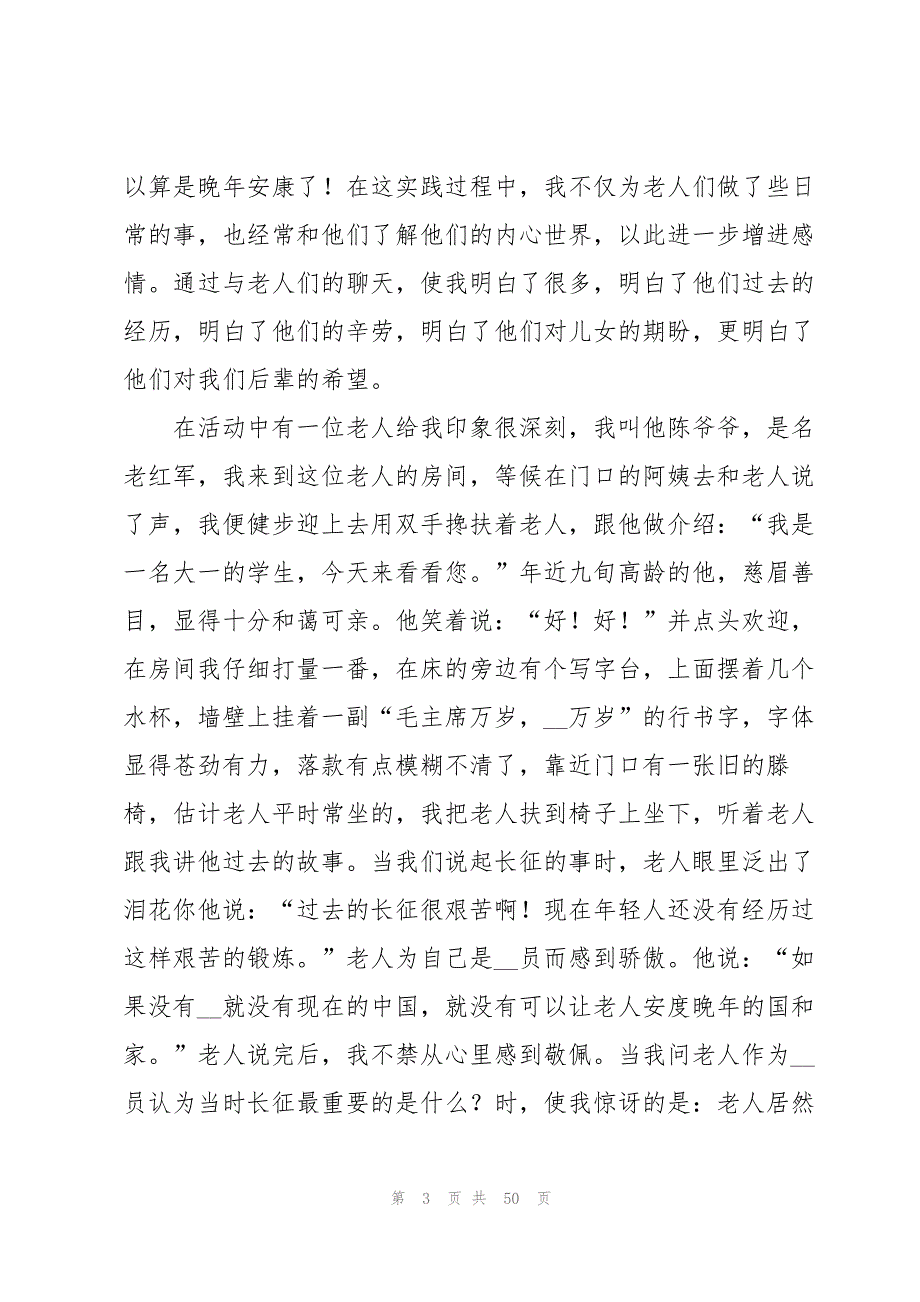 以算是晚年安康了！在这实践过程中，我不仅为老人们做了些日
常的事，也经常和他们了解他们的内心世界，以此进一步增进感
情。通过与老人们的聊天，使我明白了很多，明白了他们过去的
经历，明白了他们的辛劳，明白了他们对儿女的期盼，更明白了
他们对我们后辈的希望。
在活动中有一位老人给我印象很深刻，我叫他陈爷爷，是名
老红军，我来到这位老人的房间，等候在门口的阿姨去和老人说
了声，我便健步迎上去用双手搀扶着老人，跟他做介绍：“我是
一名大一的学生，今天来看看您。”年近九旬高龄的他，慈眉善
目，显得十分和蔼可亲。他笑着说：“好！好！”并点头欢迎，
在房间我仔细打量一番，在床的旁边有个写字台，上面摆着几个
水杯，墙壁上挂着一副“毛主席万岁，__万岁”的行书字，字体
显得苍劲有力，落款有点模糊不清了，靠近门口有一张旧的滕
椅，估计老人平时常坐的，我把老人扶到椅子上坐下，听着老人
跟我讲他过去的故事。当我们说起长征的事时，老人眼里泛出了
泪花你他说：“过去的长征很艰苦啊！现在年轻人还没有经历过
这样艰苦的锻炼。”老人为自己是__员而感到骄傲。他说：“如
果没有__就没有现在的中国，就没有可以让老人安度晚年的国和
家。”老人说完后，我不禁从心里感到敬佩。当我问老人作为__
员认为当时长征最重要的是什么？时，使我惊讶的是：老人居然
第 3 页 共 50 页